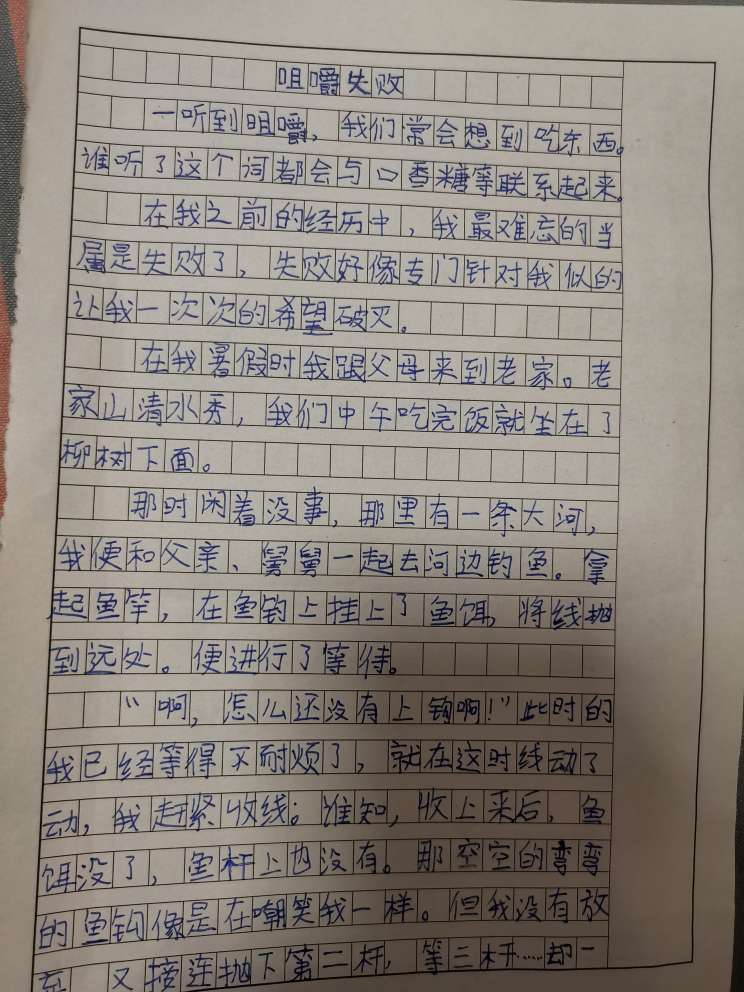 咀嚼失败
一听到咀嚼，我们常会想到吃东西。
谁听了这个词都会与口香糖等联系起来。
在我之前的经历中，我最难忘的当
属是失败了，失败好像专门针对我似的
让我一次次的希望破灭。
在我暑假时我跟父母来到老家。老
家山清水秀，我们中午吃完饭就坐在了
柳树下面。
那时闲着没事，那里有一条大河，
我便和父亲、舅舅一起去河边钓鱼。拿
起鱼竿，在鱼钩上挂上了鱼饵，将线抛
到远处。便进行了等待。
“啊，怎么还没有上钩啊！”此时的
我已经等得不耐烦了，就在这时线动了
动，我赶紧收线。谁知，收上来后，鱼
饵没了，鱼杆上也没有。那空空的弯弯
的鱼钩像是在嘲笑我一样。但我没有放
又接连抛下第二杆，等三杆……却一